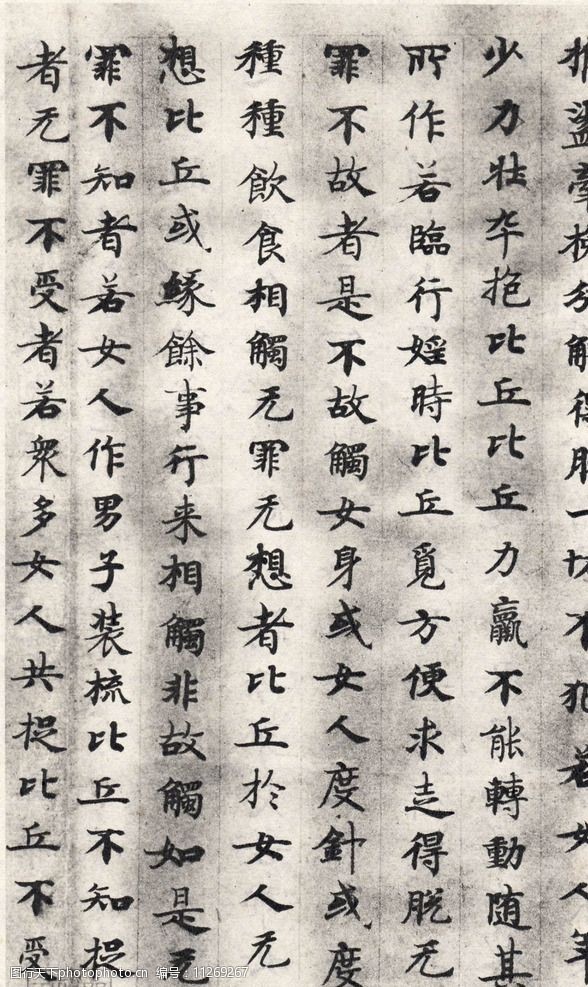 分解得脫一切不犯若女人年
少力壯卒抱比丘比丘力羸不能轉動随其
所作若臨行婬時比丘覓方便求走得脫无
罪不故者是不故觸女身或女人度針或度
種種飲食相觸无罪无想者比丘於女人无
想比丘或緣餘事行来相觸非故觸如是无
罪不知者若女人作男子装梳比丘不知捉
者无罪不受者若衆多女人共捉比丘不受
图行天下photophoto.cn 编号：11269267